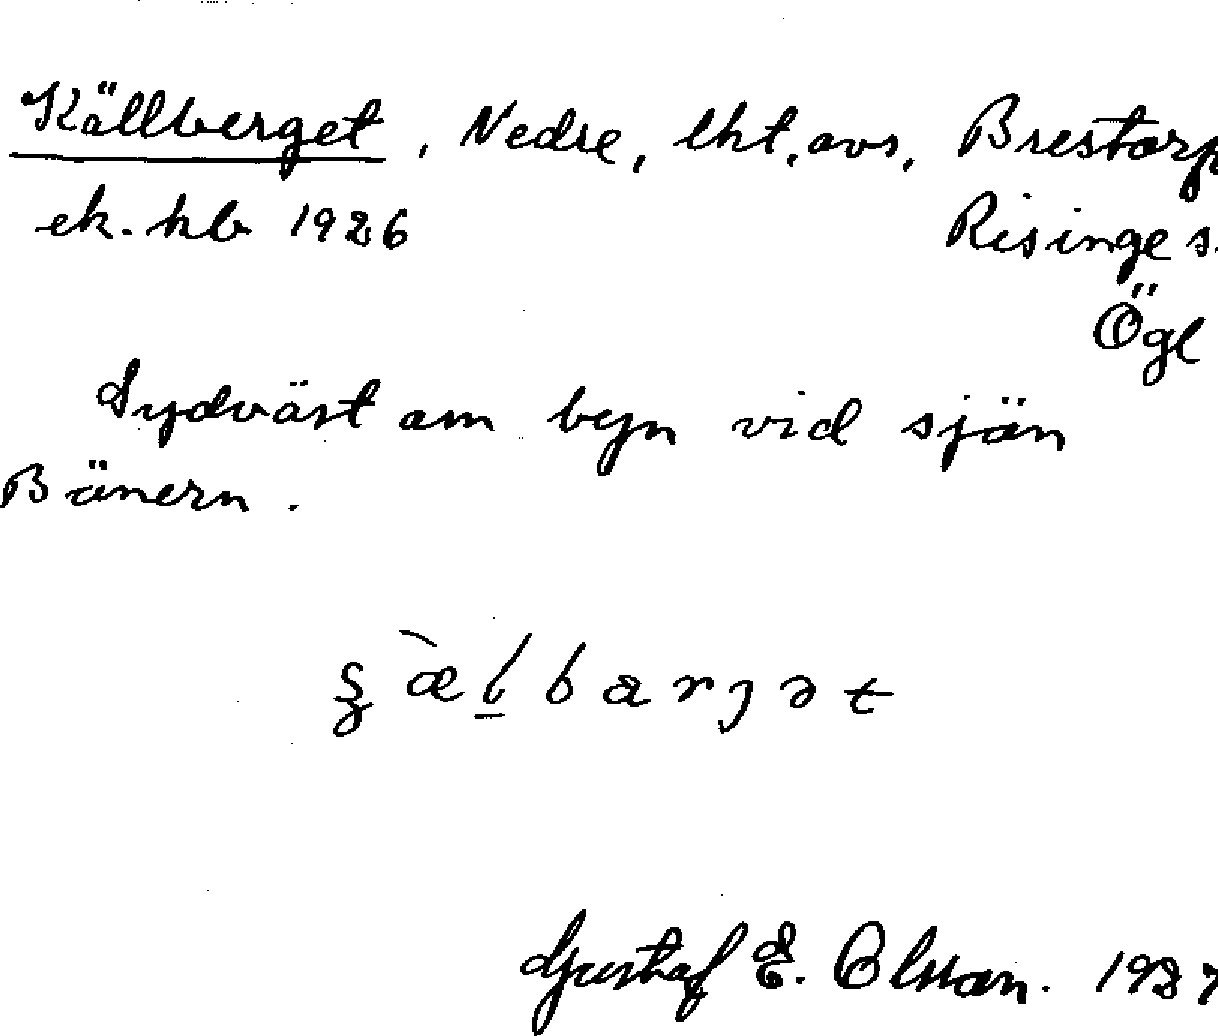 Källberget, Nedre, lht, avs, Brestorp
ek. kb 1926 Risinge s.
Ögl
Sydväst om byn vid sjön
Bönern.
Gustaf E. Olsson. 1927